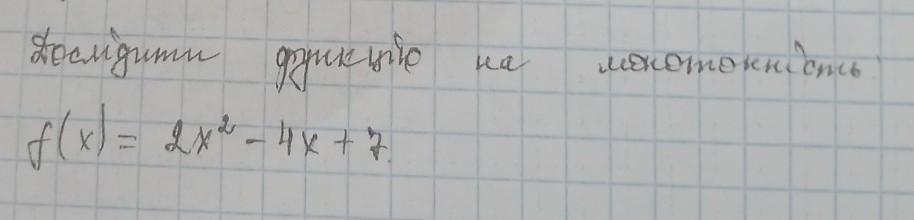 Дослідити функцію на монотонність
f(x) = 2x² - 4x + 7.